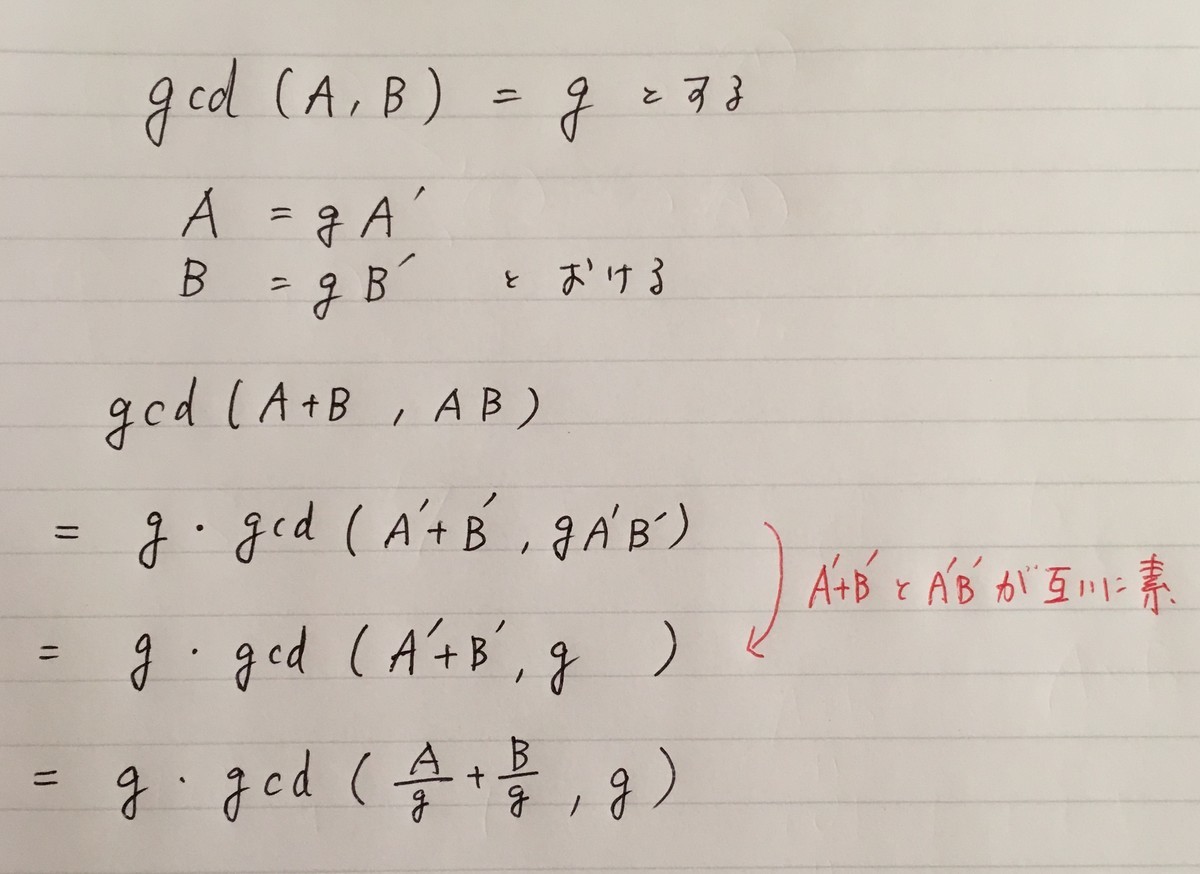 gcd (A, B) = g とする
A = g A′
B = g B′ とおける
gcd (A+B , AB)
= g · gcd (A′+B′, gA′B′)
A′+B′ と A′B′ が互いに素
= g · gcd (A′+B′, g )
= g · gcd (A/g + B/g , g)